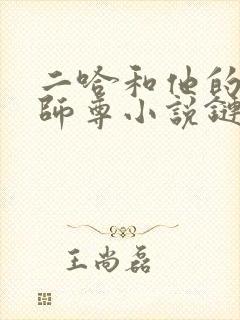 二哈和他的
師尊小説鏈
王尚磊